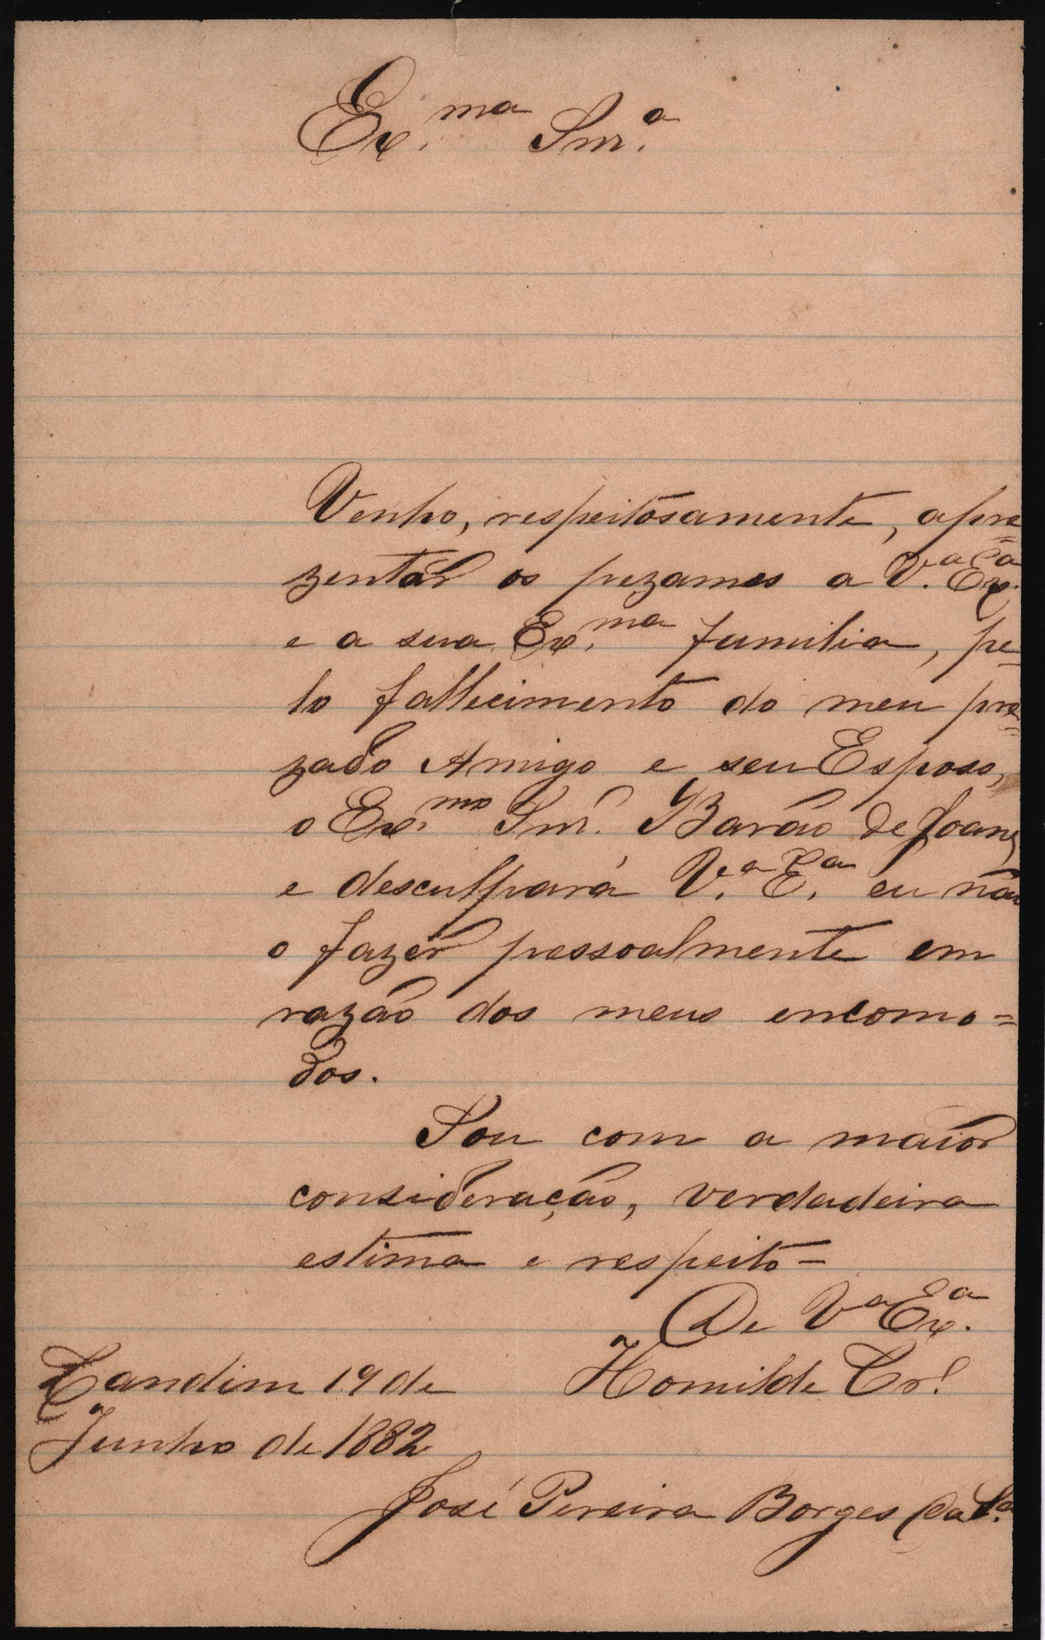 Ex.ma Snr.a
Venho, respeitosamente, apre=
zentar os pezames a V.a Ex.a
e a sua Ex.ma familia, pe=
lo fallecimento do meu pre=
zado Amigo e seu Esposo,
o Ex.mo Snr. Barão de Joane,
e desculpará V.a E.a eu não
o fazer pessoalmente em
razão dos meus encomo=
dos.
Sou com a maior
consideração, verdadeira
estima e respeito =
De V.a Ex.a
Landim 19 de Homilde Cr.
Junho de 1882
José Pereira Borges da S.a